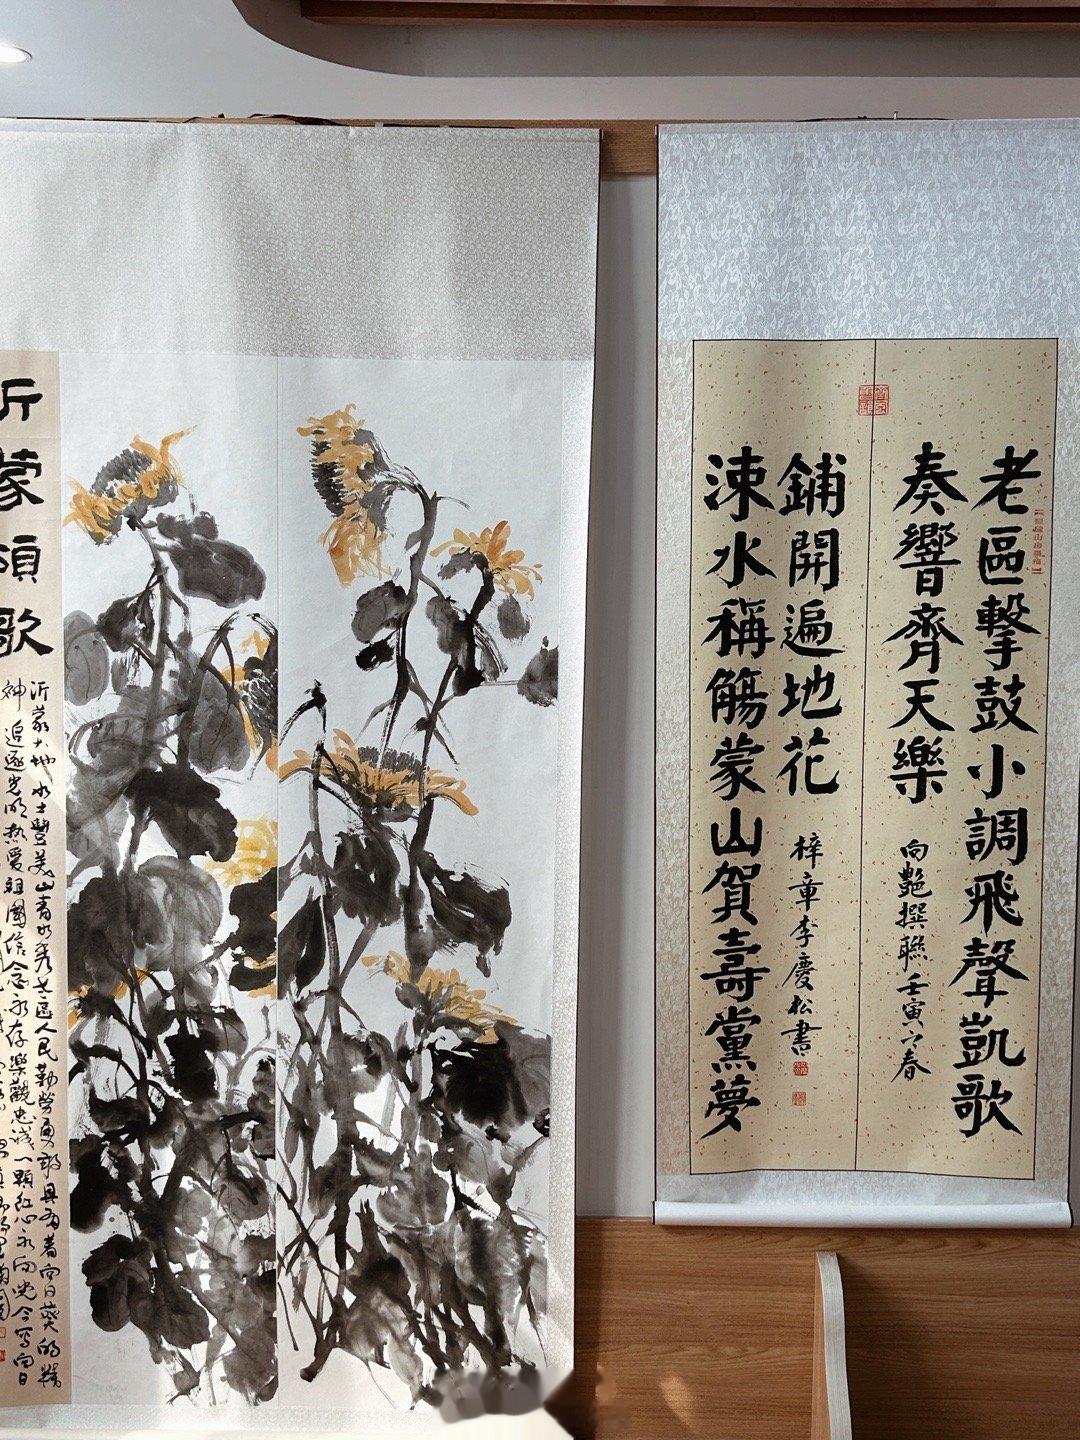 老區擊鼓小調飛聲凱歌
奏響齊天樂
向艷撰聯壬寅之春
涑水稱觴蒙山賀壽黨夢
鋪開遍地花
梓章李慶松書
沂蒙頌歌
沂蒙大地水土豐美山青水秀老區人民勤勞勇敢具有着向日葵的精
神追逐光明熱愛祖國信念永存樂觀忠誠一顆紅心永向党今寫向日